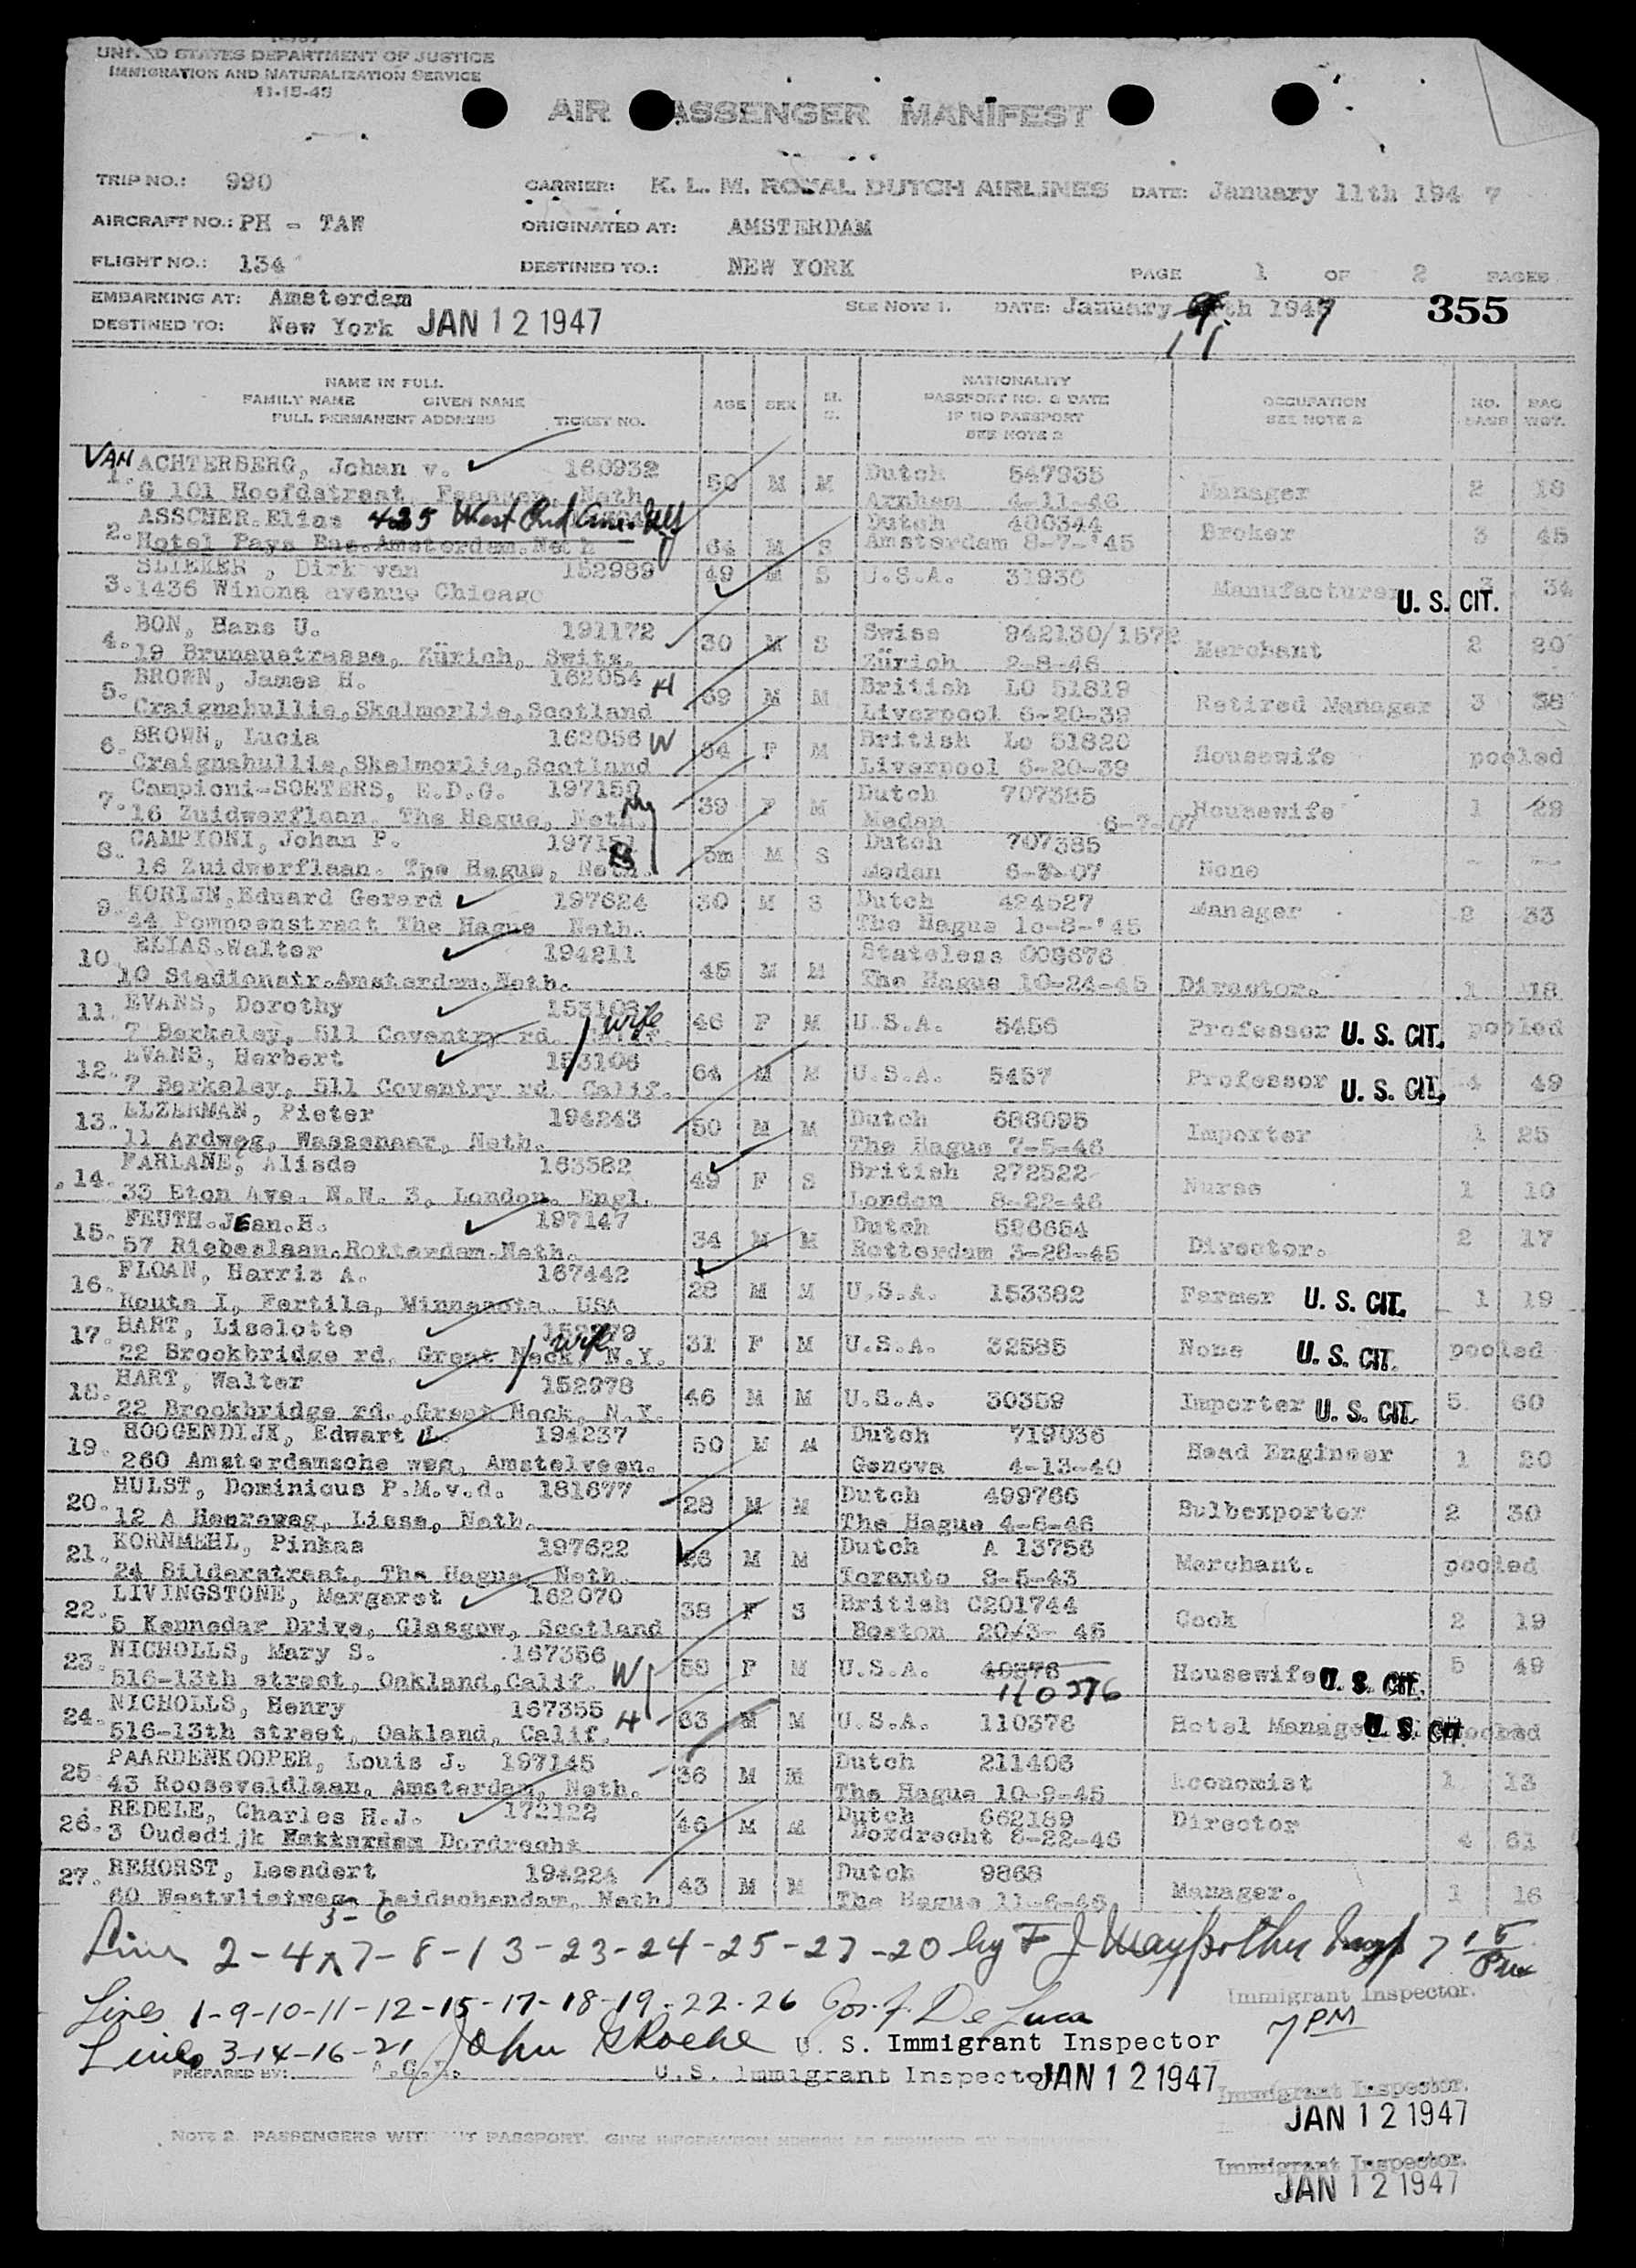 UNITED STATES DEPARTMENT OF JUSTICE
IMMIGRATION AND NATURALIZATION SERVICE
11-15-45
AIR PASSENGER MANIFEST
TRIP NO.: 990 CARRIER: K. L. M. ROYAL DUTCH AIRLINES DATE: January 11th 194 7
AIRCRAFT NO.: PH - TAW ORIGINATED AT: AMSTERDAM
FLIGHT NO.: 134 DESTINED TO.: NEW YORK PAGE 1 OF 2 PAGES
EMBARKING AT: Amsterdam SEE NOTE 1. DATE: January 11 th 1947 355
DESTINED TO: New York JAN 12 1947
NAME IN FULL
FAMILY NAME GIVEN NAME
FULL PERMANENT ADDRESS TICKET NO. AGE SEX M. S. NATIONALITY PASSPORT NO. & DATE IF NO PASSPORT SEE NOTE 2 OCCUPATION SEE NOTE 2 NO. BAGS BAG WGT.
1. VAN ACHTERBERG, Johan v. 160932 50 M M Dutch 547935 Manager 2 18
G 101 Hoofdstraat, Neth. Arnhem 4-11-46
2. ASSCHER.Elias 425 West End Ave. 64 M S Dutch 400344 Broker 3 45
Hotel Pays Bas.Amsterdam.Neth Amsterdam 8-7-'45
3. SLIEKER, Dirk van 152989 49 M S U.S.A. 31936 Manufacturer U. S. CIT. 3 34
1436 Winona avenue Chicago
4. BON, Hans U. 191172 30 M S Swiss 942130/1572 Merchant 2 20
19 Brunaustrasse, Zürich, Switz. Zürich 2-8-46
5. BROWN, James H. 162054 H 69 M M British LO 51819 Retired Manager 3 38
Craignahullie,Skelmorlie,Scotland Liverpool 6-20-39
6. BROWN, Lucia 162056 W 64 F M British Lo 51820 Housewife pooled
Craignahullie,Skelmorlie,Scotland Liverpool 6-20-39
7. Campioni-SOETERS, E.D.G. 197150 39 F M Dutch 707385 Housewife 1 29
16 Zuidwerflaan. The Hague, Neth. Medan 6-7-07
8. CAMPIONI, Johan P. 197151 5m M S Dutch 707385 None - --
16 Zuidwerflaan. The Hague, Neth. Medan 6-3-07
9. KORIJN,Eduard Gerard 197624 30 M S Dutch 424527 Manager 2 33
44 Pompoenstraat The Hague Neth. The Hague 10-8-'45
10. ELYAS.Walter 194211 45 M M Stateless 009676 Director. 1 18
10 Stadionstr.Amsterdam.Neth. The Hague 10-24-45
11. EVANS, Dorothy wife 46 F M U.S.A. 5456 Professor U. S. CIT. pooled
7 Berkeley, 511 Coventry rd. Calif.
12. EVANS, Herbert 153106 64 M M U.S.A. 5457 Professor U. S. CIT. 4 49
7 Berkeley, 511 Coventry rd. Calif.
13. ELZERMAN, Pieter 194243 50 M M Dutch 688095 Importer 1 25
11 Ardweg, Wassenaar, Neth. The Hague 7-5-46
14. FARLANE, Alisde 163582 49 F S British 272522 Nurse 1 10
33 Eton Ave. N.W. 3, London. Engl. London 8-22-46
15. FEUTH.JEan.H. 197147 34 M M Dutch 526654 Director. 2 17
57 Riebeslaan.Rotterdam.Neth. Rotterdam 3-28-45
16. FLOAN, Harris A. 167442 28 M M U.S.A. 153382 Farmer U. S. CIT. 1 19
Route I, Fertile, Minnesota. USA
17. HART, Liselotte 152979 wife 31 F M U.S.A. 32585 None U. S. CIT. pooled
22 Brookbridge rd. Great Neck, N.Y.
18. HART, Walter 152978 46 M M U.S.A. 30359 Importer U. S. CIT. 5 60
22 Brookbridge rd.,Great Neck, N.Y.
19. HOOGENDIJK, Edwart J. 194237 50 M M Dutch 719036 Head Engineer 1 20
260 Amsterdamsche weg, Amstelveen. Genova 4-13-40
20. HULST, Dominicus P.M.v.d. 181677 28 M M Dutch 499766 Bulbexporter 2 30
12 A Heereweg, Lisse, Neth. The Hague 4-6-46
21. KORNMEHL, Pinkas 197622 26 M M Dutch A 13756 Merchant. pooled
24 Bilderstraat, The Hague, Neth. Toronto 8-5-43
22. LIVINGSTONE, Margaret 162070 38 F S British C201744 Cook 2 19
5 Kennedar Drive, Glasgow, Scotland Boston 20/3- 45
23. NICHOLLS, Mary S. 167356 W 59 F M U.S.A. 49376 110376 Housewife U. S. CIT. 5 49
516-13th street, Oakland,Calif.
24. NICHOLLS, Henry 167355 H 63 M M U.S.A. 110376 Hotel Manager U. S. CIT pooled
516-13th street, Oakland, Calif.
25 PAARDENKOOPER, Louis J. 197145 36 M M Dutch 211406 Economist 1 13
43 Rooseveldlaan, Amsterdam, Neth. The Hague 10-9-45
26. REDELE, Charles H.J. 172122 46 M M Dutch 662189 Director 4 61
3 Oudedijk Rotterdam Dordrecht Dordrecht 8-22-46
27. REHORST, Leendert 194224 43 M M Dutch 9868 Manager. 1 16
60 Westvlietweg, Leidschendam, Neth The Hague 11-6-46
5-6
Lines 2-4-7-8-13-23-24-25-27-20 by F J Insp 7 15 PM
Immigrant Inspector.
Lines 1-9-10-11-12-15-17-18-19-22-26 Jos. J. De Luca 7 PM
U. S. Immigrant Inspector
Lines 3-14-16-21 John Roche
PREPARED BY: U.S. Immigrant Inspector JAN 12 1947
Immigrant Inspector.
JAN 12 1947
NOTE 2. PASSENGERS WITHOUT PASSPORT. GIVE INFORMATION HEREON AS REQUIRED BY
Immigrant Inspector.
JAN 12 1947